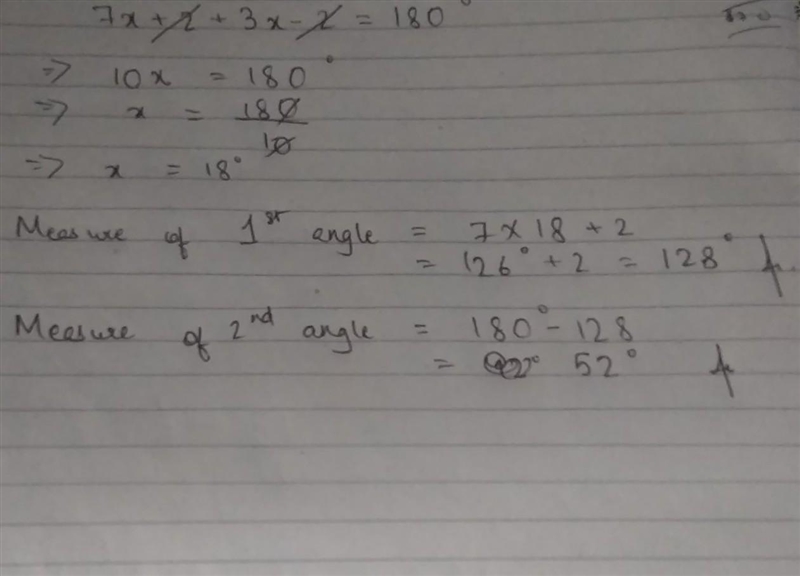 7x + 2 + 3x - 2 = 180°
⇒ 10x = 180°
⇒ x = 180/10
⇒ x = 18°
Measure of 1st angle = 7 × 18 + 2
= 126° + 2 = 128°
Measure of 2nd angle = 180° - 128
= 52°